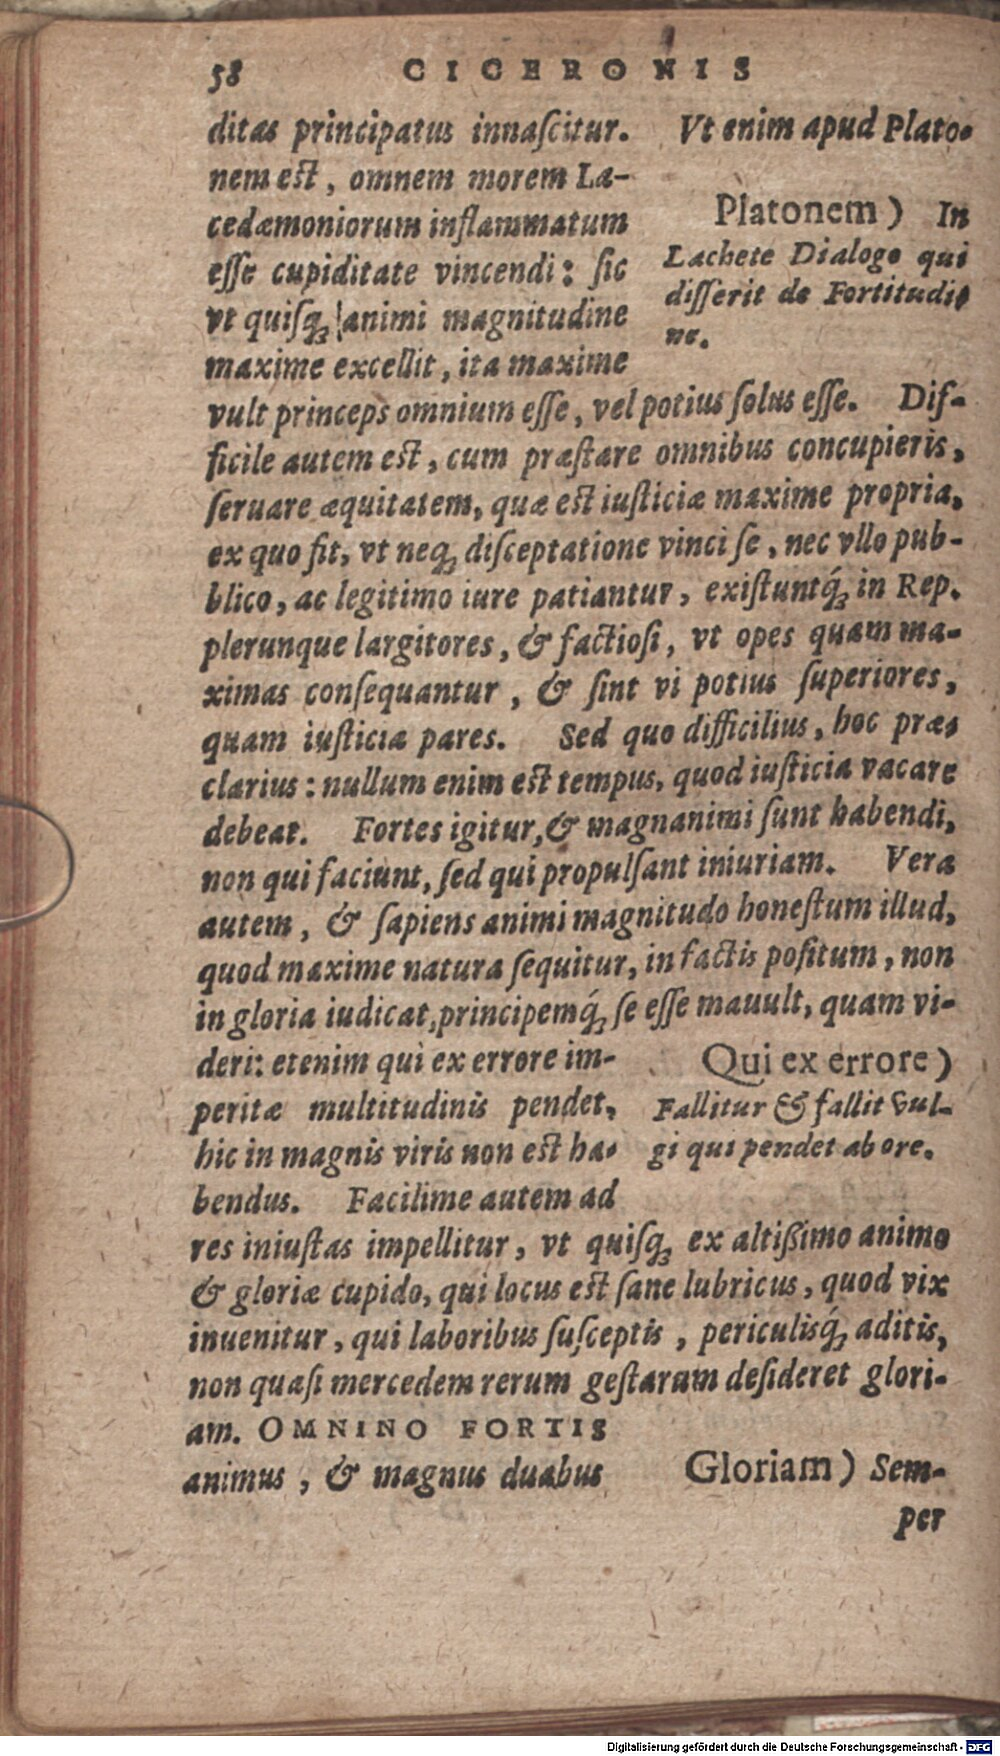 58 CICERONIS
ditas principatus innaſcitur. Vt enim apud Plato-
nem eſt, omnem morem La-
cedæmoniorum inflammatum
eſſe cupiditate vincendi: ſic
vt quiſq́; animi magnitudine
maxime excellit, ita maxime
Platonem) In
Lachete Dialogo qui
diſſerit de Fortitudi-
ne.
vult princeps omnium eſſe, vel potius ſolus eſſe. Dif-
ficile autem eſt, cum præſtare omnibus concupieris,
ſeruare æquitatem, quæ eſt iuſticiæ maxime propria,
ex quo fit, vt neq; diſceptatione vinci ſe, nec vllo pub-
blico, ac legitimo iure patiantur, exiſtuntq́; in Rep.
plerunque largitores, & factioſi, vt opes quam ma-
ximas conſequantur, & ſint vi potius ſuperiores,
quam iuſticia pares. Sed quo difficilius, hoc præ-
clarius: nullum enim eſt tempus, quod iuſticia vacare
debeat. Fortes igitur, & magnanimi ſunt habendi,
non qui faciunt, ſed qui propulſant iniuriam. Vera
autem, & ſapiens animi magnitudo honeſtum illud,
quod maxime natura ſequitur, in factis poſitum, non
in gloria iudicat, principemq́; ſe eſſe mauult, quam vi-
deri: etenim qui ex errore im-
peritæ multitudinis pendet,
hic in magnis viris non eſt ha-
bendus. Facilime autem ad
Qui ex errore)
Fallitur & fallit vul-
gi qui pendet ab ore.
res iniuſtas impellitur, vt quiſq; ex altißimo animo
& gloriæ cupido, qui locus eſt ſane lubricus, quod vix
inuenitur, qui laboribus ſuſceptis, periculisq́; aditis,
non quaſi mercedem rerum geſtarum deſideret glori-
am. OMNINO FORTIS
animus, & magnus duabus
Gloriam) Sem-
per
Digitalisierung gefördert durch die Deutsche Forschungsgemeinschaft - DFG